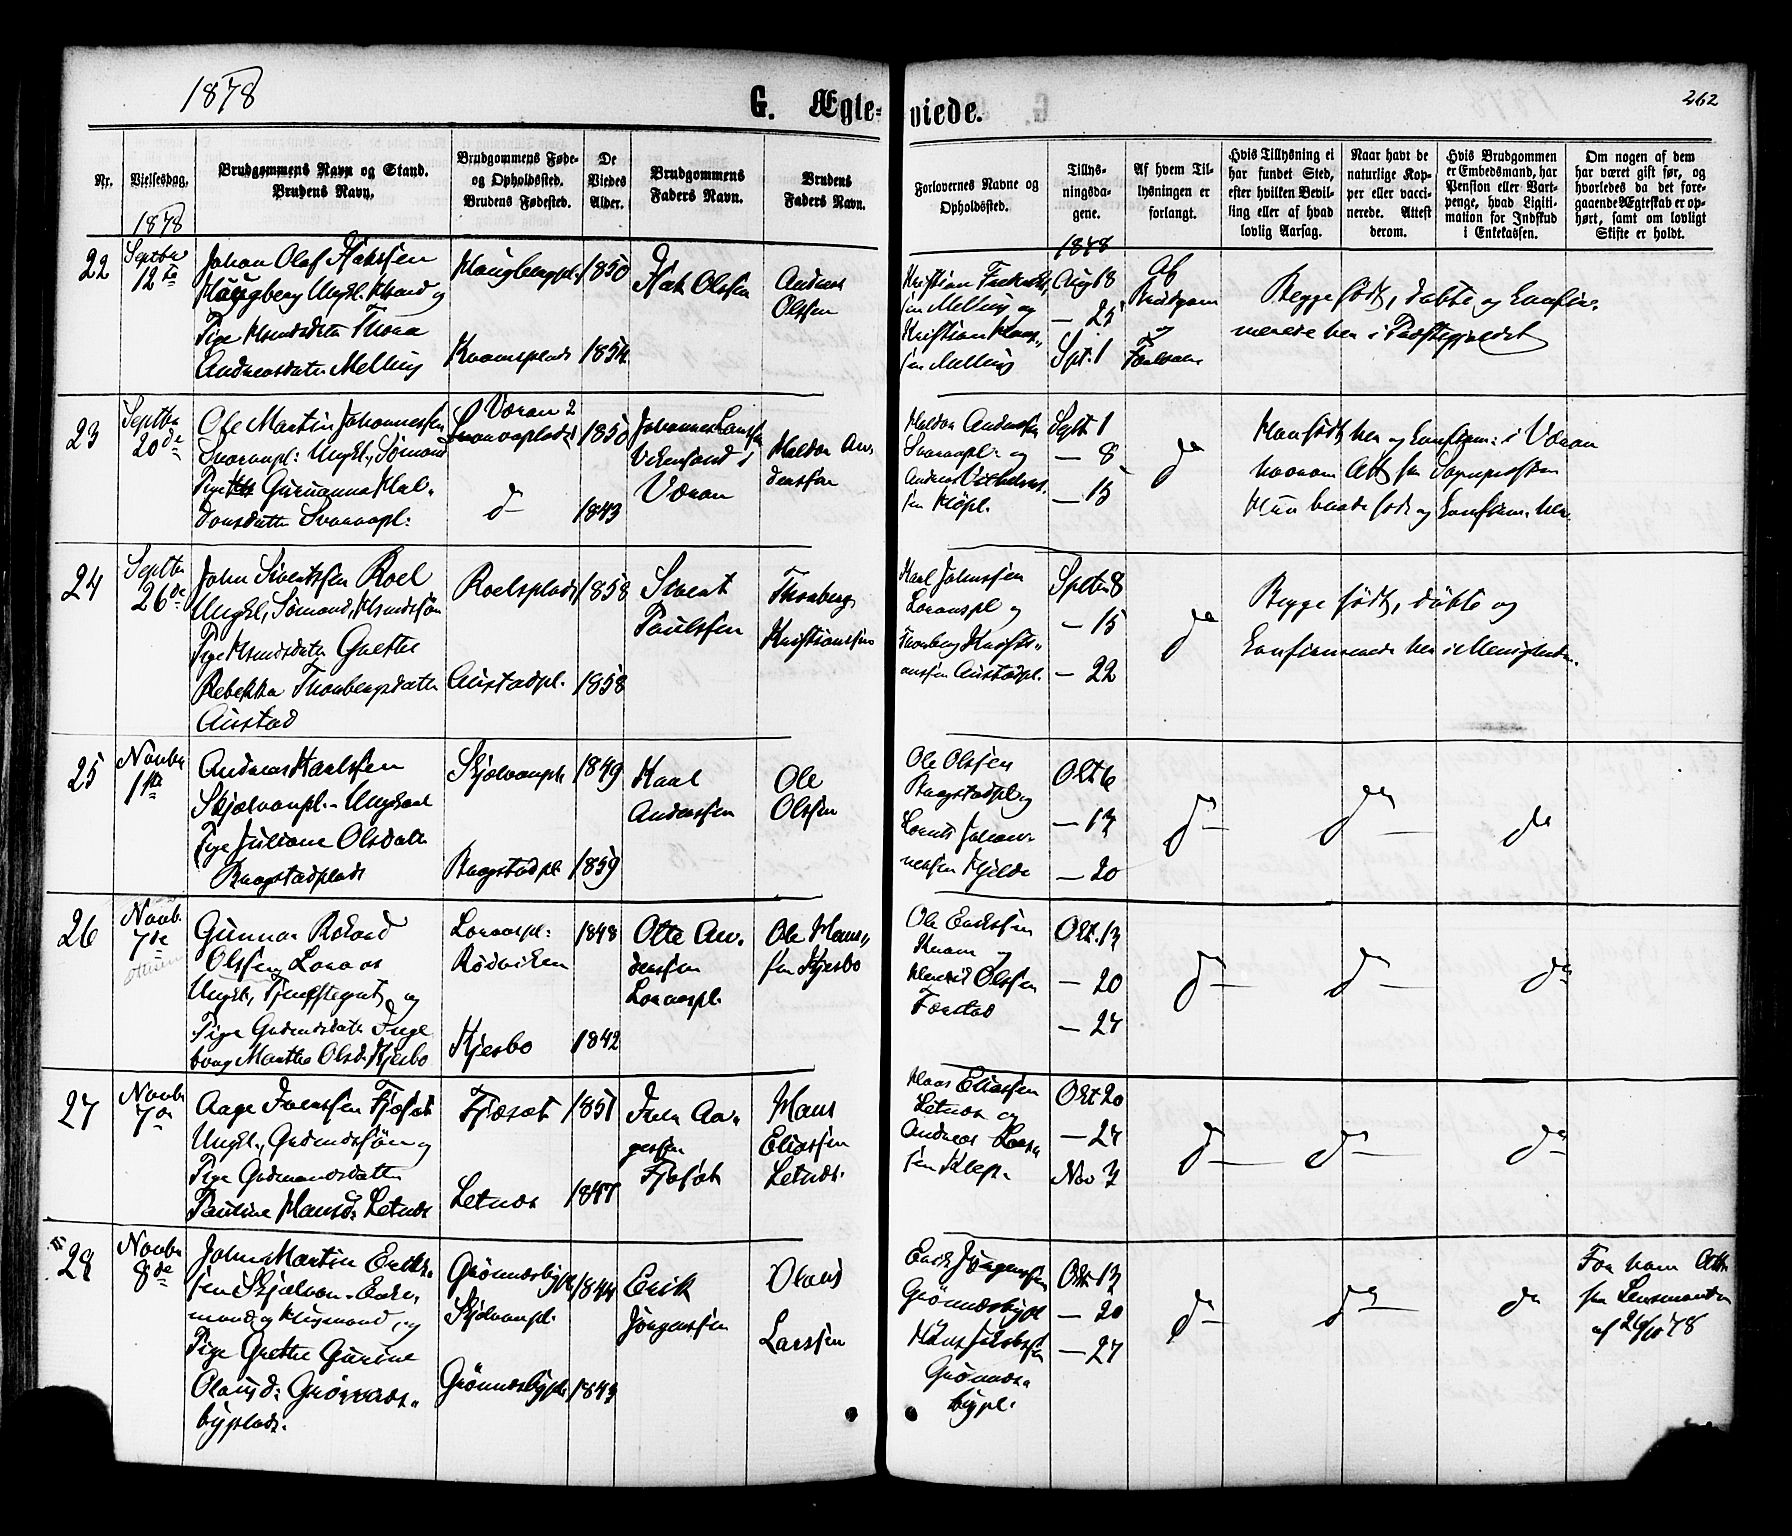 1878
G. Ægte-
viede.
262
Nr.
Vielsesdag.
Brudgommens Navn og Stand.
Brudens Navn.
Brudgommens Føde-
og Opholdssted.
Brudens Fødested.
De
Viedes
Alder.
Brudgommens
Faders Navn.
Brudens
Faders Navn.
Forlovernes Navne og
Opholdssted.
Tillys-
ningsda-
gene.
Af hvem Til-
lysningen er
forlangt.
Hvis Tillysning ei
har fundet Sted,
efter hvilken Bevil-
ling eller af hvad
lovlig Aarsag.
Naar havt de
naturlige Kop-
per eller vacci-
nerede. Attest
derom.
Hvis Brudgommen
er Embedsmand, har
Pension eller Vart-
penge, hvad Ligiti-
mation for Indskud
i Enkekassen.
Om nogen af dem
har været gift før, og
hvorledes da det fore-
gaaende Ægteskab er op-
hørt, samt om lovligt
Skifte er holdt.
1878
1878
22
Septbr
12te
Johan Olaf
Ungkl. og
Pige Thora
Andreasdatter Melling
1850
1854
Olssen
Andreas
Olssen
Kristian
Melling og
Kristian
Melling
Aug 18
— 25
Spt. 1
Af
Brudgom
og
Forlover
Begge født, døbte og Confir-
merede her i Præstegjeldet
23
Septbr
20de
Ole Martin Johannessen
Svarvapl: Ungkl, Sømand
Pige Gurianna Hal-
dorsdatter Svarvapl:
Væran
Svarvaplads
d—
1850
1843
Johannes Larssen
Vikensand i
Væran
Haldor An-
derssen
Haldor Anderssen
Svarvapl. og
Andreas
Septb. 1
— 8
— 15
do
Han født her og Confirm: i Væran
hvorom Att fra Sognepresten
Hun baade født og Confirm. her
24
Septbr
26de
John Sivertssen Roel
Ungkl, Sømand, Husmdssøn
Pige Husmdsdatter Grethe
Rebekka Thonbergsdatter
Austad
Roelsplads
Austadpl.
1858
1858
Sivert
Paulssen
Thonberg
Kristianssen
Karl Johnssen
Loraaspl og
Thonberg Kristi-
anssen Austadpl.
Sptbr 8
— 15
— 22
do
Begge født, døbte og
Confirmerede her i Menigheden.
25
Novbr
1ste
Andreas Karlssen
Skjelvanpl. Ungkarl
Pige Juliane Olsdatter
Raagstadplads
Skjelvanpl.
Raagstadpl.
1849
1859
Karl
Anderssen
Ole
Olssen
Ole Olssen
Raagstadpl og
Lornts Johan-
nessen Hjelde
Okt 6
— 13
— 20
d—
do—
do
26
Novbr
7de
Ottesen
Gunnar Rikard
Olssen Loraas
Ungkl, og
Pige Gudmdsdatter Inge
borg Marthe Olsd. Kjesbo
Loraaspl:
Rødviken
Kjesbo
1848
1842
Otte An-
derssen
Loraaspl.
Ole Hans-
sen Kjesbo
Ole Erikssen
Kvam og
Henrik Olssen
Færstad
Okt. 13
— 20
— 27
d—
do—
do
27
Novbr
7de
Aage Iverssen Fjæsæt
Ungkl., Gudmdssøn og
Pige Gudmandsdatter
Pauline Hansd: Letnæs
Fjæsæt
Letnæs
1851
1847
Iver Aa-
gessen
Fjæsæt
Hans
Eliassen
Letnæs.
Klaus Eliassen
Letnæs og
Andreas Lars-
sen Klep.
Okt 20
— 27
Nov 3
d—
do—
do
28
Novbr
8de
John Martin Eriks-
sen Skjelvan. Enke-
mand og Husmand, og
Pige Grethe Gurine
Olausd: Grønnæs-
byplads.
Grønnæsbypl
Skjelvanpl.
Grønnæsbypl
1844
1843
Erik
Jørgenssen
Olaus
Larssen
Erik Jørgenssen
Grønnæsbypl
Hans Jakobssen
Grønnæs-
bypl.
Okt. 13
— 20
— 27
do—
do—
do
For ham Att.
fra Lensmanden
af 26/10 78